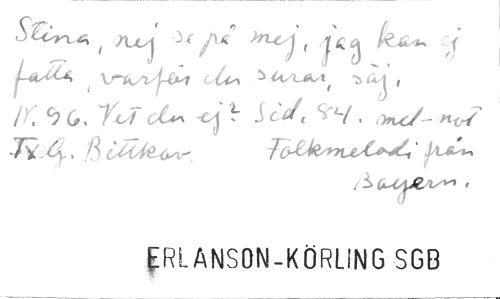 Stina, nej se på mej, jag kan ej
fatta, varför du surar, säj.
N. 96. Vet du ej? Sid. 84. mel-not
Tx G. Bittkav. Folkmelodi från
Bayern.
ERLANSON-KÖRLING SGB